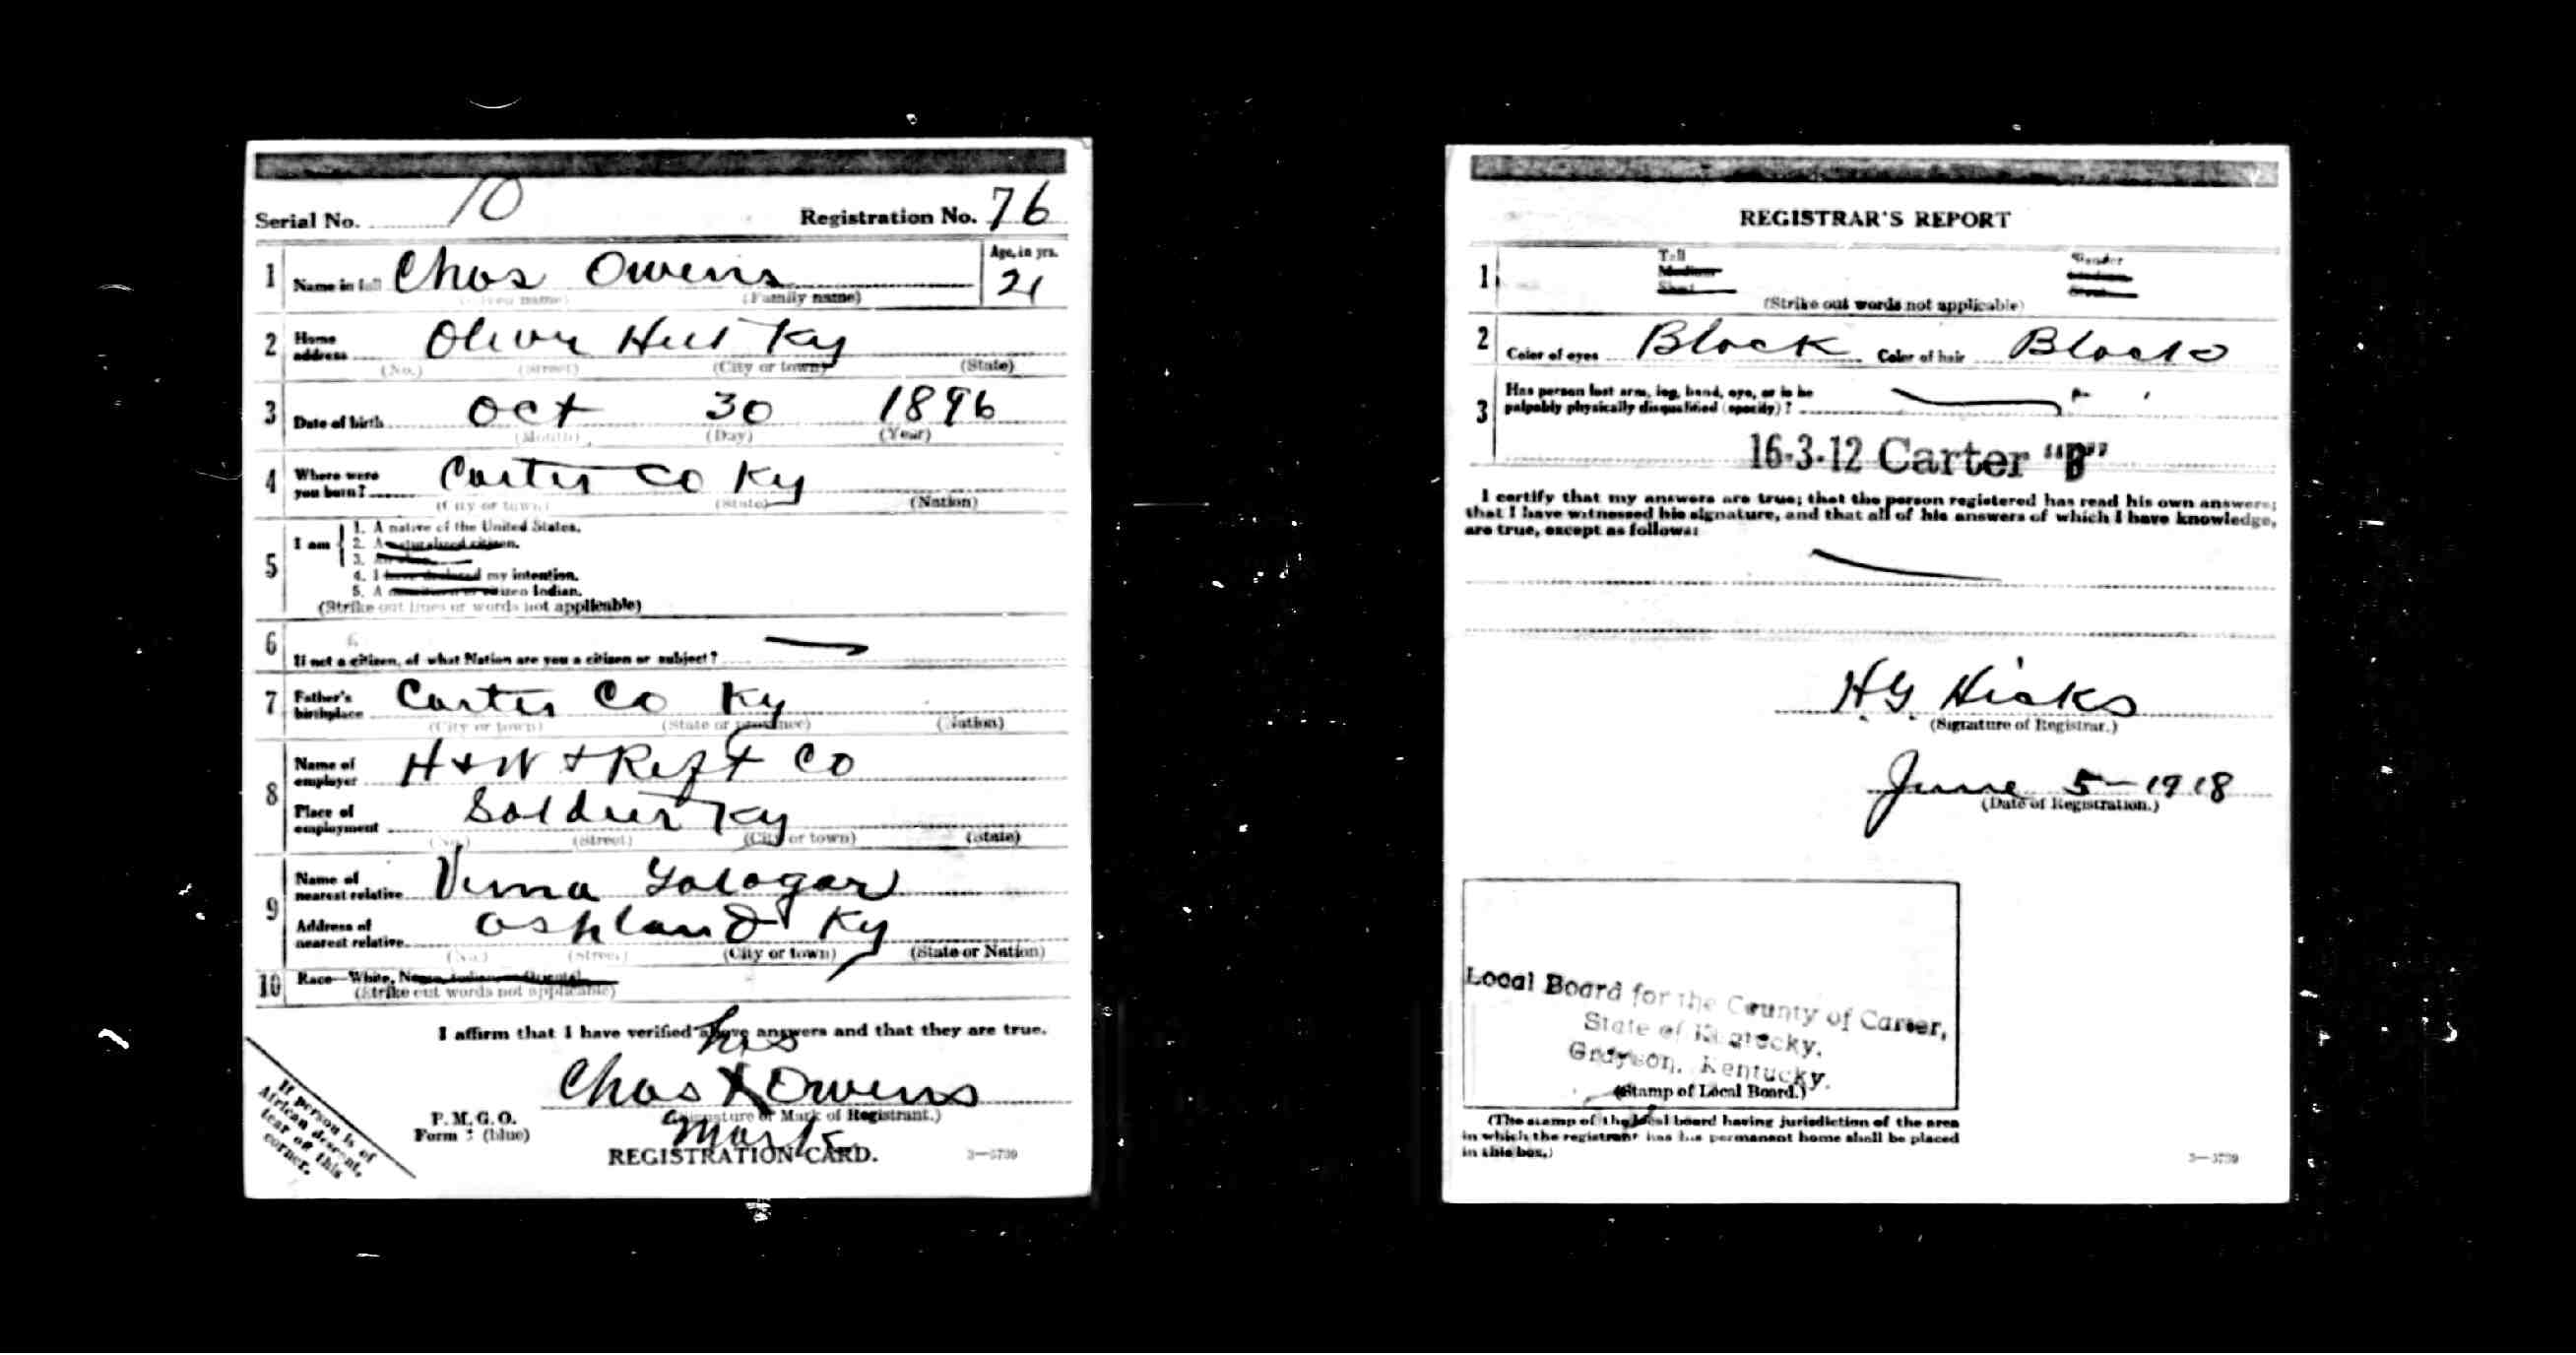 Serial No. 10 Registration No. 76
1 Name in full Chas Owens Age, in yrs. 21
(Given name) (Family name)
2 Home address Oliver Hill Ky
(No.) (Street) (City or town) (State)
3 Date of birth Oct 30 1896
(Month) (Day) (Year)
4 Where were you born? Carter Co Ky
(City or town) (State) (Nation)
5 I am
1. A native of the United States.
2. A naturalized citizen.
3. An alien.
4. I have declared my intention.
5. A citizen Indian.
(Strike out lines or words not applicable)
6 If not a citizen, of what Nation are you a citizen or subject?
7 Father's birthplace Carter Co Ky
(City or town) (State or province) (Nation)
8 Name of employer H & W & Ref Co
Place of employment Soldier Ky
(No.) (Street) (City or town) (State)
9 Name of nearest relative
Address of nearest relative Ashland Ky
(No.) (Street) (City or town) (State or Nation)
10 Race—White, Negro, Indian, or Oriental.
(Strike out words not applicable)
I affirm that I have verified above answers and that they are true.
his
Chas X Owens
(Signature or Mark of Registrant.)
mark
P. M. G. O.
Form (blue)
REGISTRATION CARD. 3—5739
If person is
African descent,
tear off this
corner.
REGISTRAR'S REPORT
1 Tall Slender
Medium Medium
Short Stout
(Strike out words not applicable)
2 Color of eyes Black Color of hair Black
3 Has person lost arm, leg, hand, eye, or is he
palpably physically disqualified (specify)?
16-3-12 Carter "B"
I certify that my answers are true; that the person registered has read his own answers;
that I have witnessed his signature, and that all of his answers of which I have knowledge,
are true, except as follows:
H. G. Hicks
(Signature of Registrar.)
June 5-1918
(Date of Registration.)
Local Board for the County of Carter,
State of Kentucky,
Grayson, Kentucky.
(Stamp of Local Board.)
(The stamp of the local board having jurisdiction of the area
in which the registrant has his permanent home shall be placed
in this box.)
3—5739